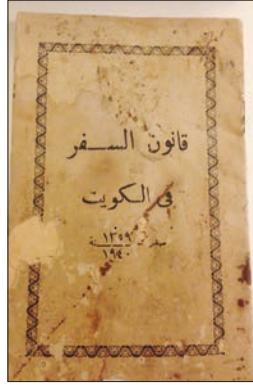 قانون السفر
في الكويت
سنة ١٣٥٩
١٩٤٠